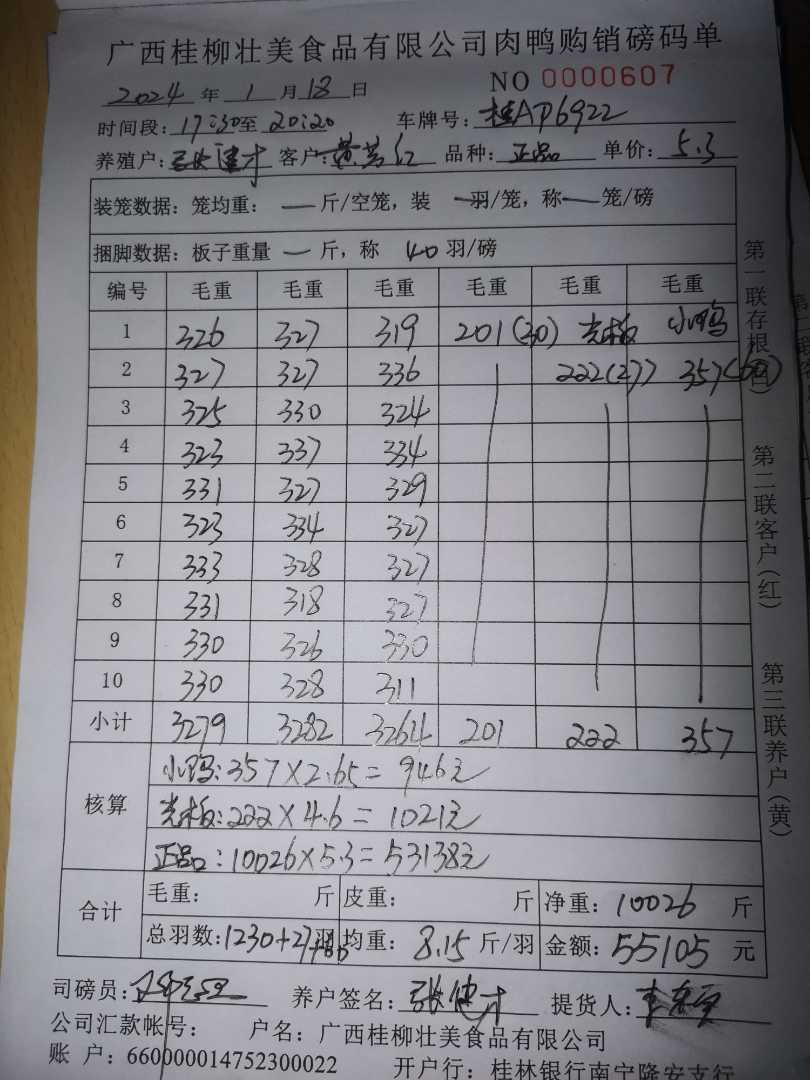 广西桂柳壮美食品有限公司肉鸭购销磅码单
2024 年 1 月 18 日 NO 0000607
时间段：17:30至 20:20 车牌号：桂AP6922
养殖户：张健才 客户：黄芸红 品种：正品 单价：5.3
装笼数据：笼均重：—斤/空笼，装 —羽/笼，称—笼/磅
捆脚数据：板子重量 —斤，称 40 羽/磅
编号 毛重 毛重 毛重 毛重 毛重 毛重
1 326 327 319 201(30) 光板 小鸭
2 327 327 336 222(27) 357(60)
3 325 330 324
4 323 337 334
5 331 327 329
6 323 334 327
7 333 328 327
8 331 318 327
9 330 326 330
10 330 328 311
小计 3279 3282 3264 201 222 357
核算
小鸭：357×2.65=946元
光板：222×4.6=1021元
正品：10026×5.3=53138元
合计
毛重： 斤 皮重： 斤 净重：10026 斤
总羽数：1230+27羽+60 均重：8.15 斤/羽 金额：55105 元
司磅员： 养户签名：张健才 提货人：
公司汇款帐号： 户名：广西桂柳壮美食品有限公司
账 户：660000014752300022 开户行：桂林银行南宁隆安支行
第一联存根(白)
第二联客户(红)
第三联养户(黄)